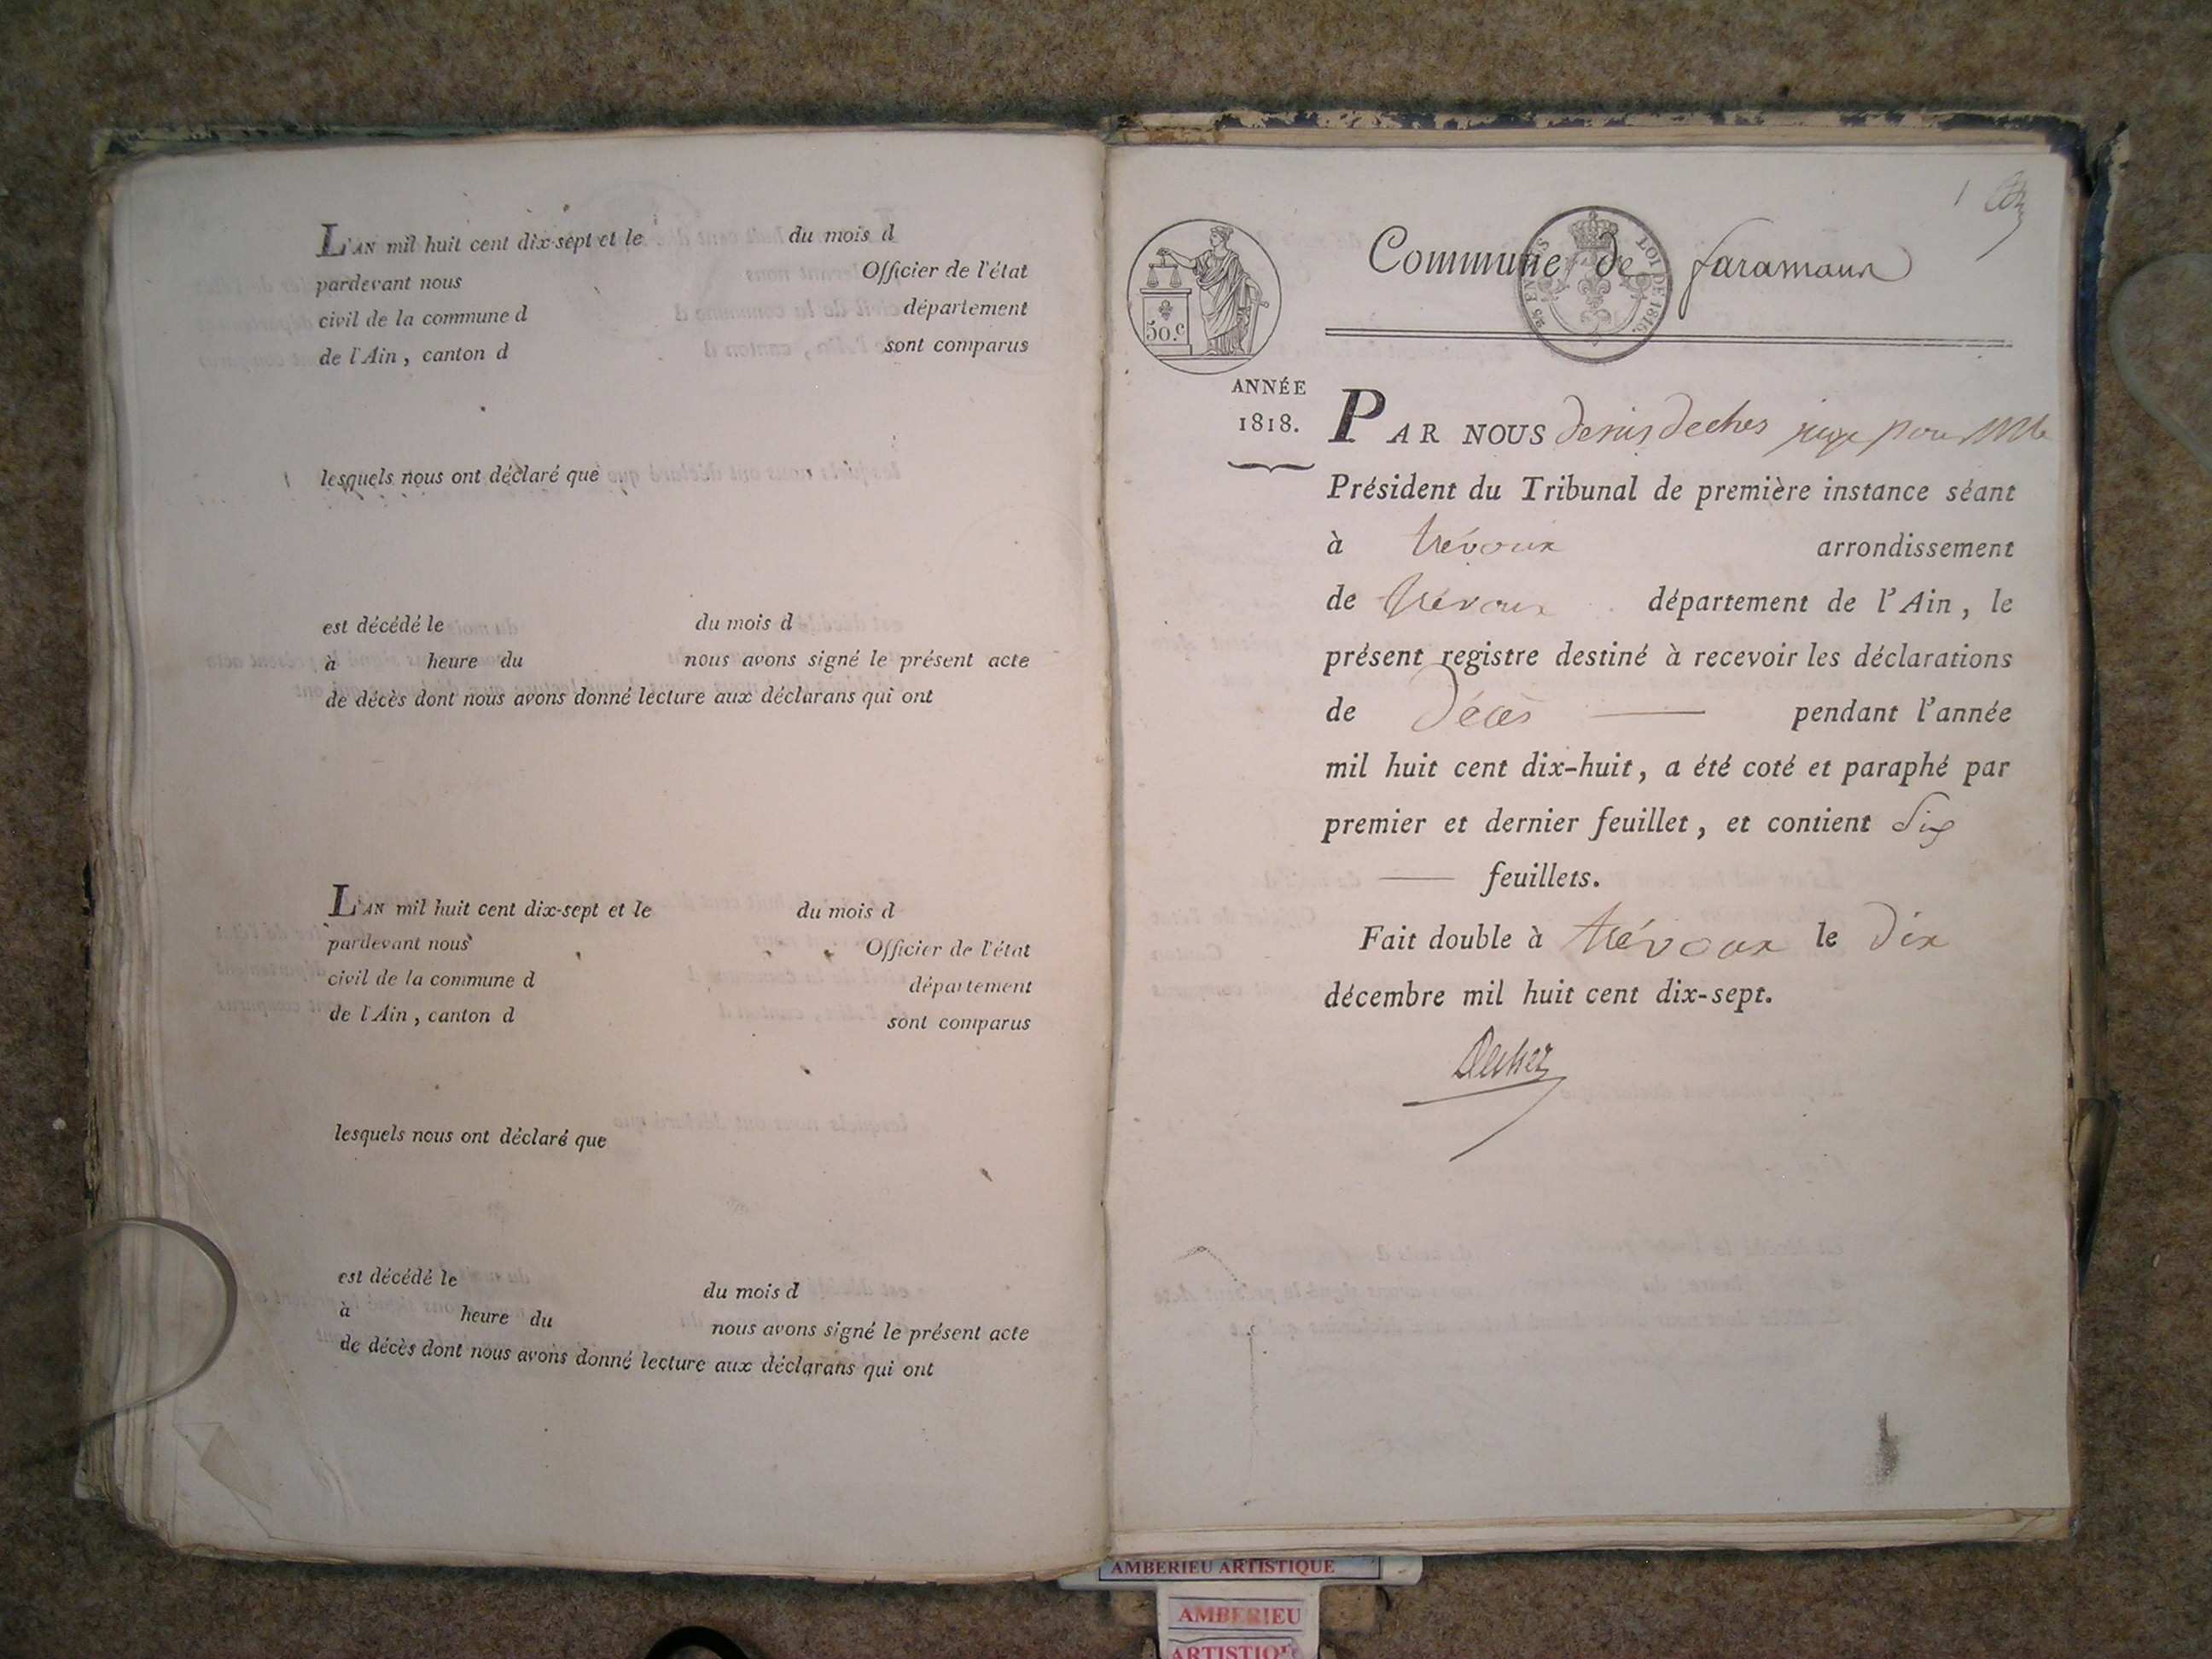 L'AN mil huit cent dix-sept et le du mois d
pardevant nous Officier de l'état
civil de la commune d département
de l'Ain, canton d sont comparus
lesquels nous ont déclaré que
est décédé le du mois d
à heure du nous avons signé le présent acte
de décès dont nous avons donné lecture aux déclarans qui ont
L'AN mil huit cent dix-sept et le du mois d
pardevant nous Officier de l'état
civil de la commune d département
de l'Ain, canton d sont comparus
lesquels nous ont déclaré que
est décédé le du mois d
à heure du nous avons signé le présent acte
de décès dont nous avons donné lecture aux déclarans qui ont
1
Commune de faramans
25 EN SUS
LOI DE 1816.
50.c
ANNÉE
1818.
PAR NOUS denis deches juge pour
Président du Tribunal de première instance séant
à trévoux arrondissement
de trévoux département de l'Ain, le
présent registre destiné à recevoir les déclarations
de Décès pendant l'année
mil huit cent dix-huit, a été coté et paraphé par
premier et dernier feuillet, et contient Six
feuillets.
Fait double à trévoux le dix
décembre mil huit cent dix-sept.
Dechez
AMBERIEU ARTISTIQUE
AMBERIEU
ARTISTIQUE